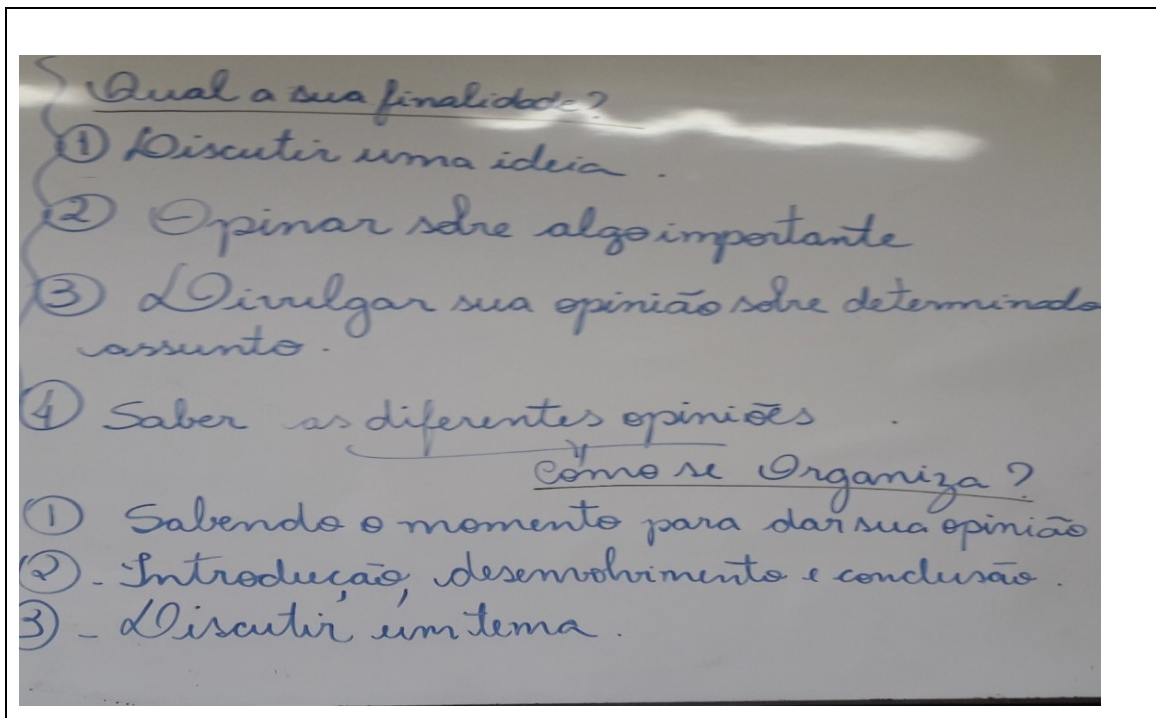 Qual a sua finalidade?
① Discutir uma ideia.
② Opinar sobre algo importante
③ Divulgar sua opinião sobre determinado
assunto.
④ Saber as diferentes opiniões.
Como se Organiza?
① Sabendo o momento para dar sua opinião
②- Introdução, desenvolvimento e conclusão.
③- Discutir um tema.